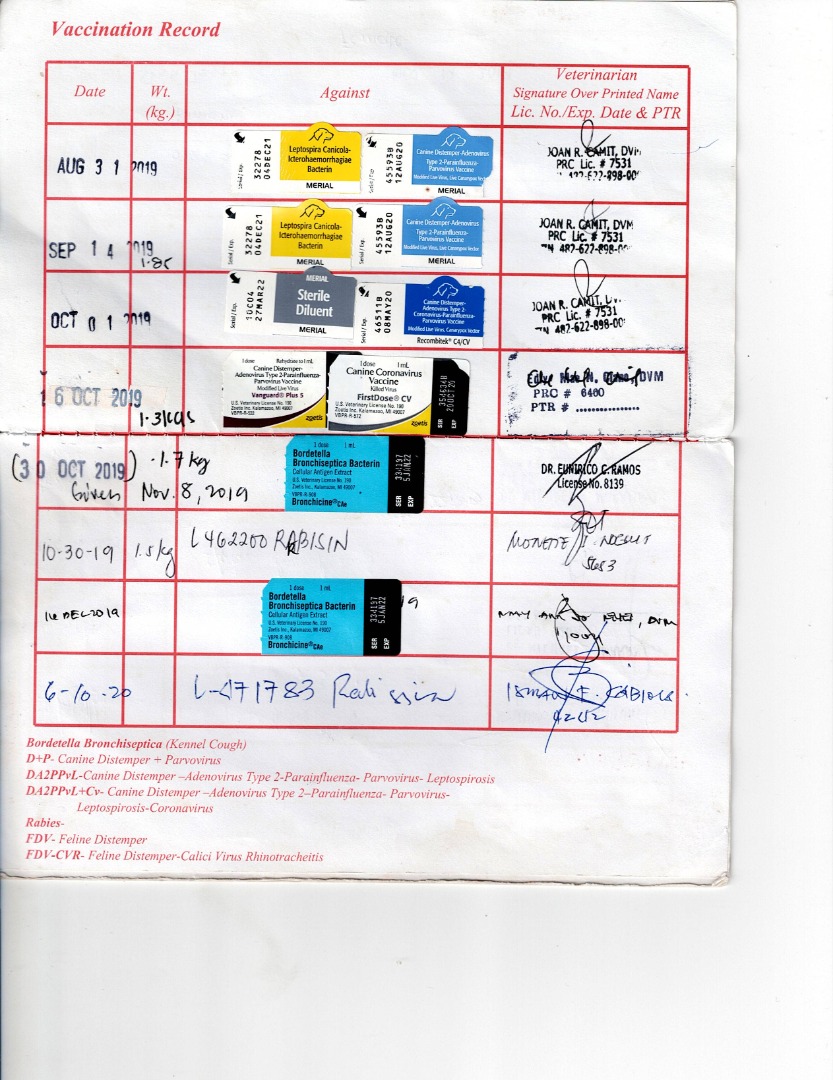 Vaccination Record
Date
Wt.
(kg.)
Against
Veterinarian
Signature Over Printed Name
Lic. No./Exp. Date & PTR
AUG 31 2019
Serial / Exp.
32278
04DEC21
Leptospira Canicola-
Icterohaemorrhagiae
Bacterin
MERIAL
Serial / Exp.
45593B
12AUG20
Canine Distemper-Adenovirus
Type 2-Parainfluenza-
Parvovirus Vaccine
Modified Live Virus, Live Canarypox Vector
MERIAL
JOAN R. CAMIT, DVM
PRC Lic. # 7531
SEP 14 2019
1.85
Serial / Exp.
32278
04DEC21
Leptospira Canicola-
Icterohaemorrhagiae
Bacterin
MERIAL
Serial / Exp.
45593B
12AUG20
Canine Distemper-Adenovirus
Type 2-Parainfluenza-
Parvovirus Vaccine
Modified Live Virus, Live Canarypox Vector
MERIAL
JOAN R. CAMIT, DVM
PRC Lic. # 7531
OCT 01 2019
Serial / Exp.
10C04
27MAR22
MERIAL
Sterile
Diluent
MERIAL
Serial / Exp.
46511B
08MAY20
Canine Distemper-
Adenovirus Type 2-
Coronavirus-Parainfluenza-
Parvovirus Vaccine
Modified Live Virus, Canarypox Vector
Recombitek® C4/CV
JOAN R. CAMIT,
PRC Lic. # 7531
16 OCT 2019
1.3kgs
1 dose Rehydrate to 1 mL
Canine Distemper-
Adenovirus Type 2-Parainfluenza-
Parvovirus Vaccine
Modified Live Virus
Vanguard® Plus 5
U.S. Veterinary License No. 190
Zoetis Inc. Kalamazoo, MI 49007
zoetis
1 dose 1 mL
Canine Coronavirus
Vaccine
Killed Virus
FirstDose® CV
U.S. Veterinary License No. 190
Zoetis Inc. Kalamazoo, MI 49007
zoetis
SER
EXP
DVM
PRC # 6400
PTR # ................
(30 OCT 2019) 1.7 kg
Given Nov. 8, 2019
1 dose 1 mL
Bordetella
Bronchiseptica Bacterin
Cellular Antigen Extract
U.S. Veterinary License No. 190
Zoetis Inc., Kalamazoo, MI 49007
VBPR-R-908
Bronchicine®CAe
SER 334197
EXP 5JAN22
DR. EURIRICO C. RAMOS
License No. 8139
10-30-19
1.5 kg
L462200 RABISIN
16 DEC 2019
1 dose 1 mL
Bordetella
Bronchiseptica Bacterin
Cellular Antigen Extract
U.S. Veterinary License No. 190
Zoetis Inc., Kalamazoo, MI 49007
VBPR-R-908
Bronchicine®CAe
SER 334197
EXP 5JAN22
6-10-20
L-471783 Rabissin
Bordetella Bronchiseptica (Kennel Cough)
D+P- Canine Distemper + Parvovirus
DA2PPvL-Canine Distemper –Adenovirus Type 2-Parainfluenza- Parvovirus- Leptospirosis
DA2PPvL+Cv- Canine Distemper –Adenovirus Type 2–Parainfluenza- Parvovirus-
Leptospirosis-Coronavirus
Rabies-
FDV- Feline Distemper
FDV-CVR- Feline Distemper-Calici Virus Rhinotracheitis